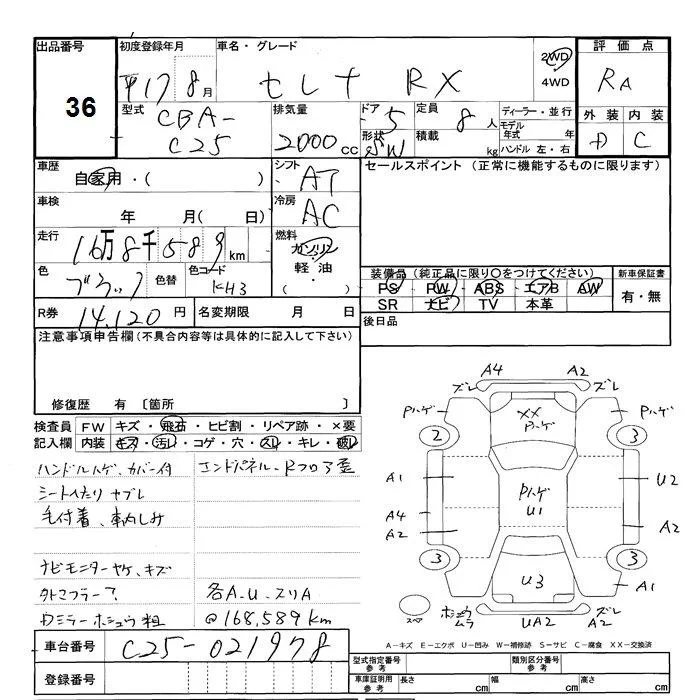 出品番号 初度登録年月 車名・グレード 評価点
36
平17 8月 セレナ RX 2WD 4WD RA
型式 排気量 ドア 5 定員 8人 ディーラー・並行 外装 内装
CBA-C25 2000cc 形状 SW 積載 kg モデル年式 年 ハンドル 左・右 D C
車歴 自家用・( ) シフト AT セールスポイント (正常に機能するものに限ります)
車検 年 月( 日) 冷房 AC
走行 16万8千589km 燃料 ガソリン 軽油・( )
色 ブラック 色替 色コード KH3
装備品 (純正品に限り○をつけてください) 新車保証書
PS PW ABS エアB AW 有・無
SR ナビ TV 本革
R券 14,120円 名変期限 月 日 後日品
注意事項申告欄(不具合内容等は具体的に記入して下さい)
修復歴 有 〔箇所 〕
検査員記入欄 FW キズ・飛石・ヒビ割・リペア跡・×要
内装 キズ・汚レ・コゲ・穴・スレ・キレ・破レ
ハンドルハゲ、カバー付 エンドパネル、Rフロア歪
シートヘタリ ヤブレ
毛付着、車内しみ
ナビモニターヤケ、キズ
外マフラー
各A.U.スリA
ドアミラーホシュウ粗 @168,589km
A4 A2
ズレ ズレ
Pハゲ XX Pハゲ Pハゲ
2 3
A1 Pハゲ U1 U2
A4 A2
A2
3 3
U3 A1
スペア ホシュウムラ UA2 A2
A-キズ E-エクボ U-凹み W-補修跡 S-サビ C-腐食 XX-交換済
車台番号 C25-021978
登録番号
型式指定番号 参考 類別区分番号 参考
車庫証明用 参考 長さ cm 幅 cm 高さ cm